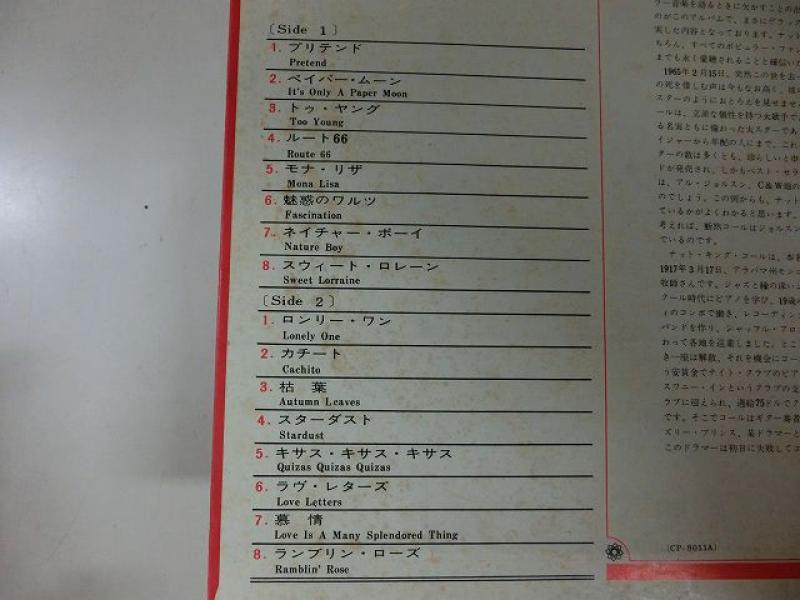 〔Side 1〕
1. プリテンド
Pretend
2. ペイパー・ムーン
It's Only A Paper Moon
3. トゥ・ヤング
Too Young
4. ルート66
Route 66
5. モナ・リザ
Mona Lisa
6. 魅惑のワルツ
Fascination
7. ネイチャー・ボーイ
Nature Boy
8. スウィート・ロレーン
Sweet Lorraine
〔Side 2〕
1. ロンリー・ワン
Lonely One
2. カチート
Cachito
3. 枯葉
Autumn Leaves
4. スターダスト
Stardust
5. キサス・キサス・キサス
Quizas Quizas Quizas
6. ラヴ・レターズ
Love Letters
7. 慕情
Love Is A Many Splendored Thing
8. ランブリン・ローズ
Ramblin' Rose
ラー音楽を語るときに欠かすことの
のがこのアルバムで、まさにデラッ
実した内容となっております。ナット
ちろん、すべてのポピュラー・ファン
までも永く愛聴されることと確信いた
1965年2月15日、突然この世を去っ
の死を惜しむ声は今もなお高く、
スターのようにおとろえを見せません
ールは、立派な個性を持つ大歌手で
る名実ともに備わった大スターであ
イジャーから年配の人にまで、これ
ターの数は多くとも、珍らしいと申
ドが発売され、しかもベスト・セラ
は、アル・ジョルスン、C&W畑の
のでしょう。この例からも、ナット
ているかがよくわかると思います。
考えれば、断然コールはジョルスン
でいるのです。
ナット・キング・コールは、本名
1917年3月17日、アラバマ州モン
牧師さんです。ジャズと縁の深い
クール時代にピアノを学び、19歳
ィのコンボで働き、レコーディン
バンドを作り、シャッフル・アロ
わって各地を巡業しました。とこ
き一座は解散、それを機会にコー
う安賃金でナイト・クラブのピア
スワニー・インというクラブの支
ラブに迎えられ、週給75ドルでク
です。そこでコールはギター奏者
ズリー・プリンス、某ドラマーと
このドラマーは初日に失敗してコ
(CP-8033A)